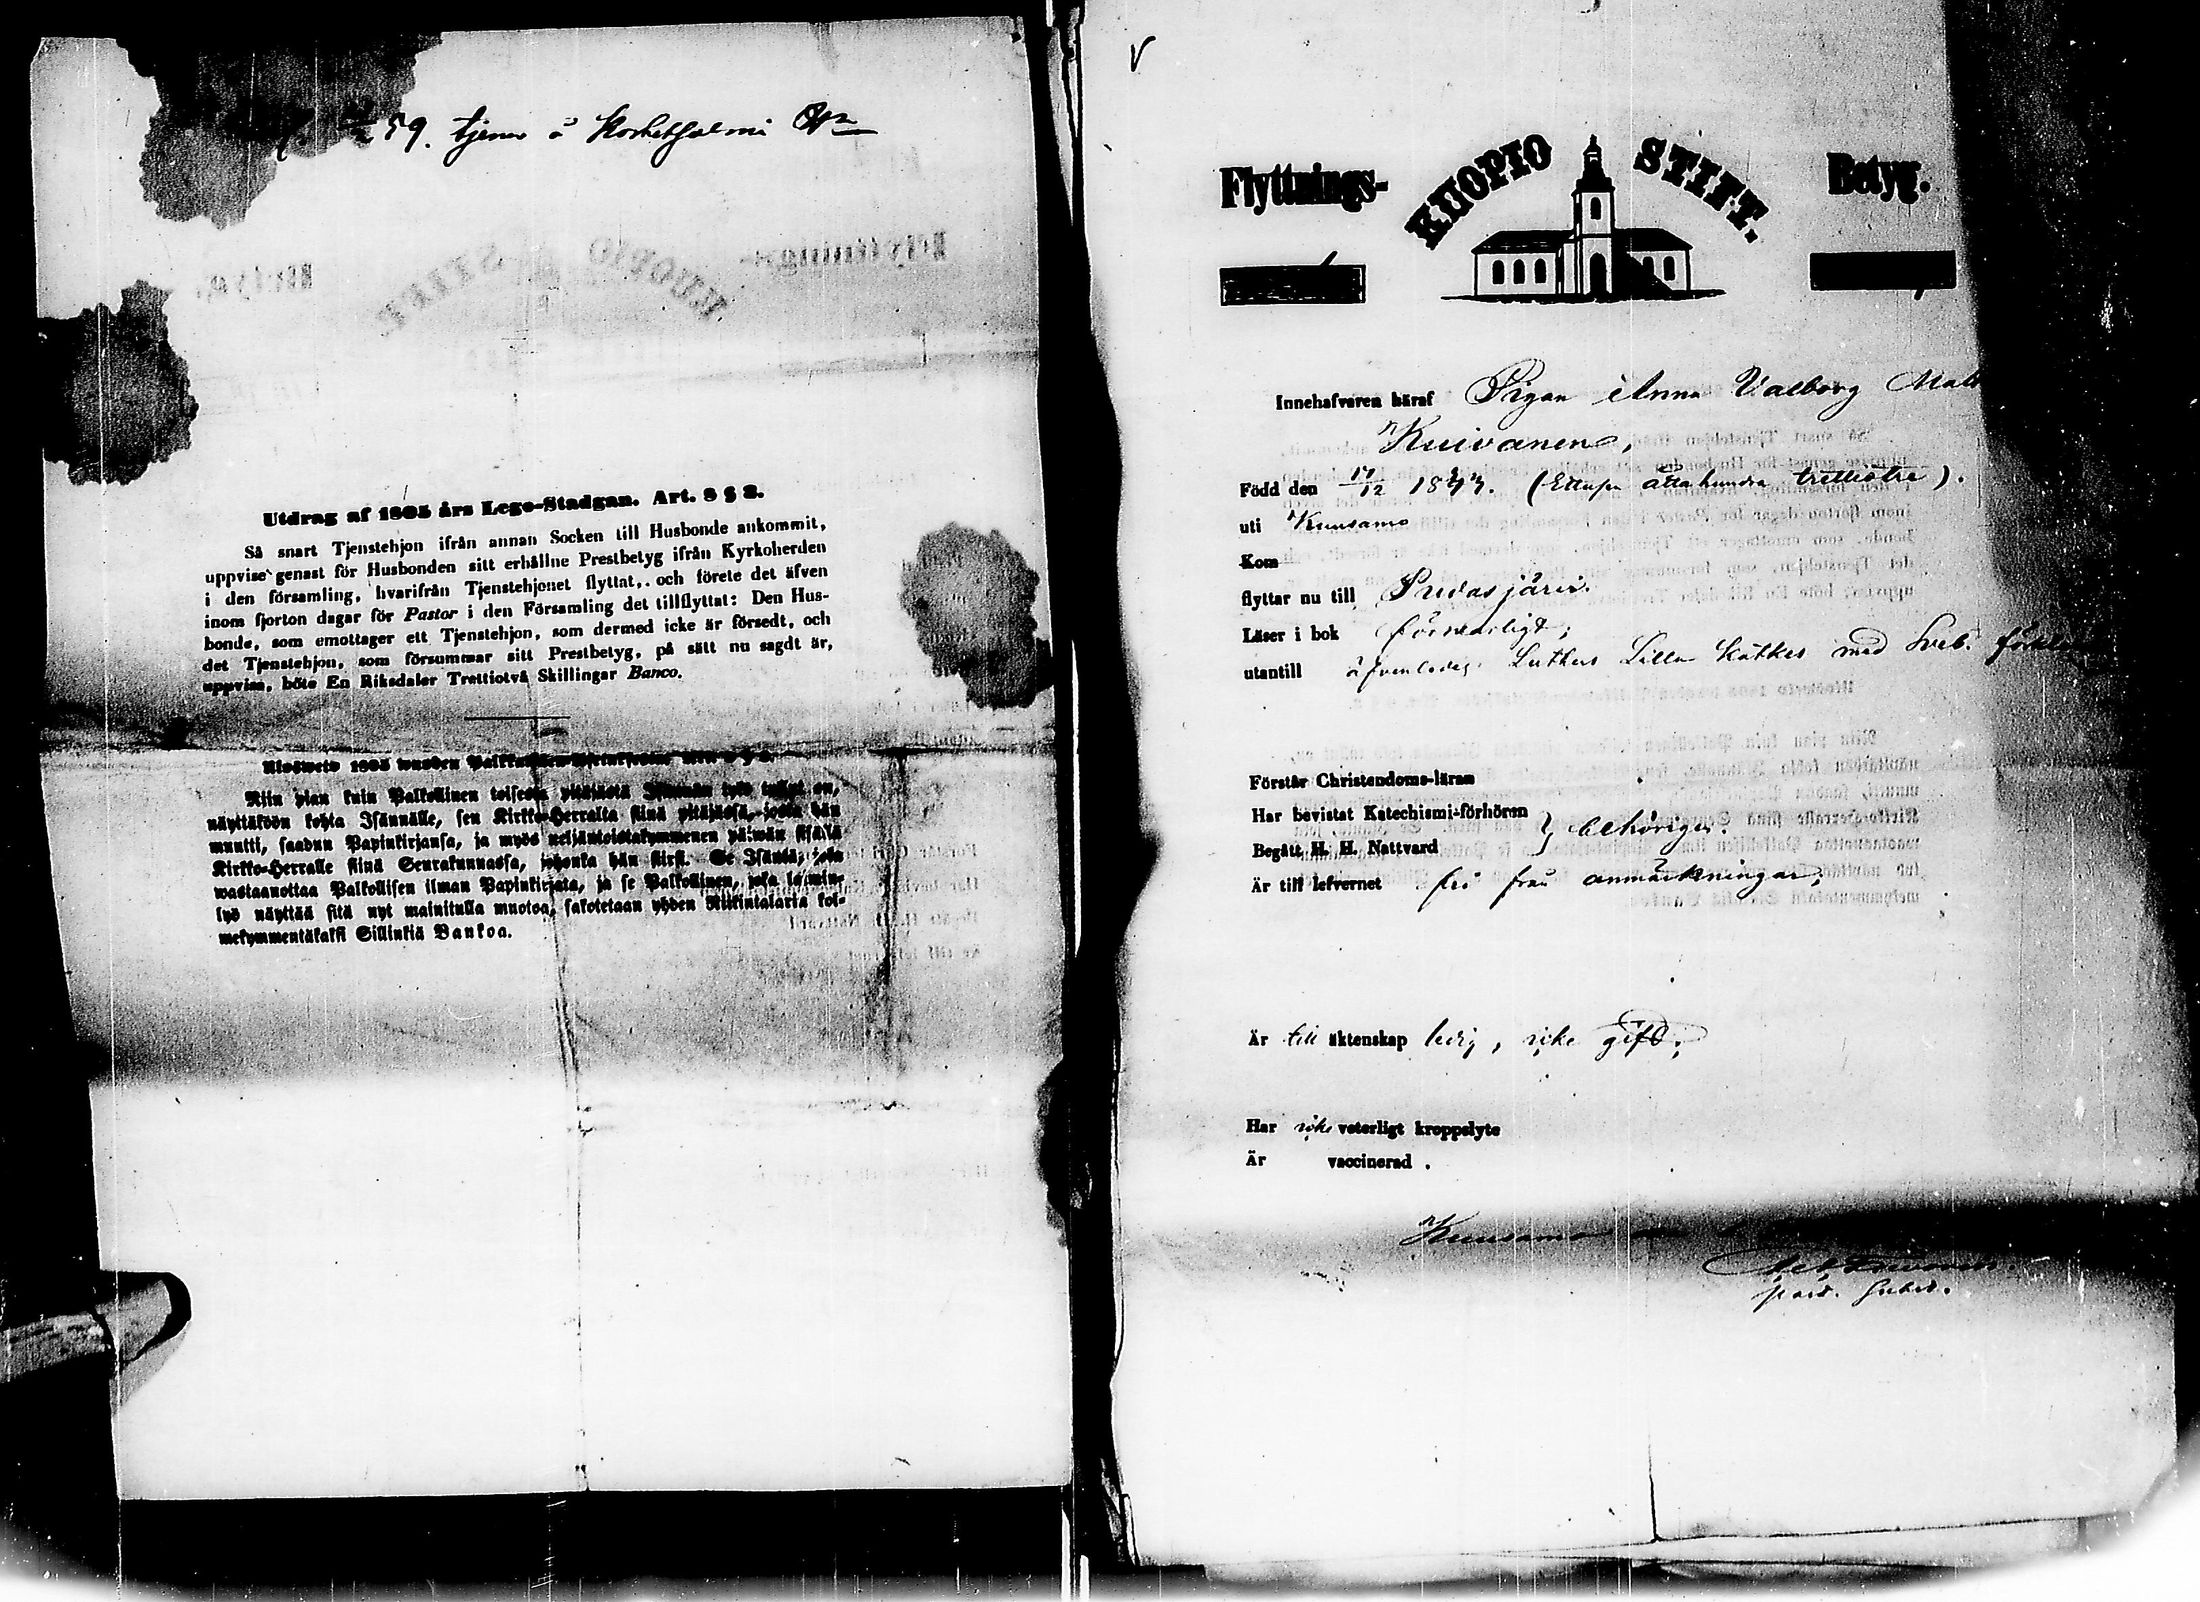 59. tjenar å
Utdrag af 1805 års Lego-Stadgan. Art. 8 § 2.
Så snart Tjenstehjon ifrån annan Socken till Husbonde ankommit,
uppvise genast för Husbonden sitt erhållne Prestbetyg ifrån Kyrkoherden
i den församling, hvarifrån Tjenstehjonet flyttat, och förete det äfven
inom fjorton dagar för Pastor i den Församling det tillflyttat: Den Hus-
bonde, som emottager ett Tjenstehjon, som dermed icke är försedt, och
det Tjenstehjon, som försummar sitt Prestbetyg, på sätt nu sagdt är,
uppvisa, böte En Riksdaler Trettiotvå Skillingar Banco.
Ulosweto 1805 wuoden
Niin pian kuin Palkollinen toisesta pitäjästä Isännän tykö tullut on,
näyttäköön kohta Isännälle, sen Kirkko-Herralta siinä pitäjässä, josta hän
muutti, saadun Papinkirjansa, ja myös neljäntoistakymmenen päiwän sisällä
Kirkko-Herralle siinä Seurakunnassa, johonka hän siirsi. Se Isäntä, joka
wastaanottaa Palkollisen ilman Papinkirjata, ja se Palkollinen, joka laimin-
lyö näyttää sitä nyt mainitulla muotoa, sakotetaan yhden Riikintalaria kol-
mekymmentäkaksi Sillinkiä Bankoa.
Flyttnings- KUOPIO STIFT. Betyg.
Innehafvaren häraf Pigan Anna Valborg
Kuivanen,
Född den 17/12 1833. (Ettusen åttahundra trettiotre).
uti Kuusamo
Kom
flyttar nu till Pudasjärvi.
Läser i bok försvarligt;
utantill äfvenledes Luthers Lilla Katkes med Sveb.
Förstår Christendoms-läran
Har bevistat Katechismi-förhören
Begått H. H. Nattvard } behörigen.
Är till lefvernet fri från anmärkningar;
Är till äktenskap ledig, icke gift;
Har icke veterligt kroppslyte
Är vaccinerad.
Kuusamo